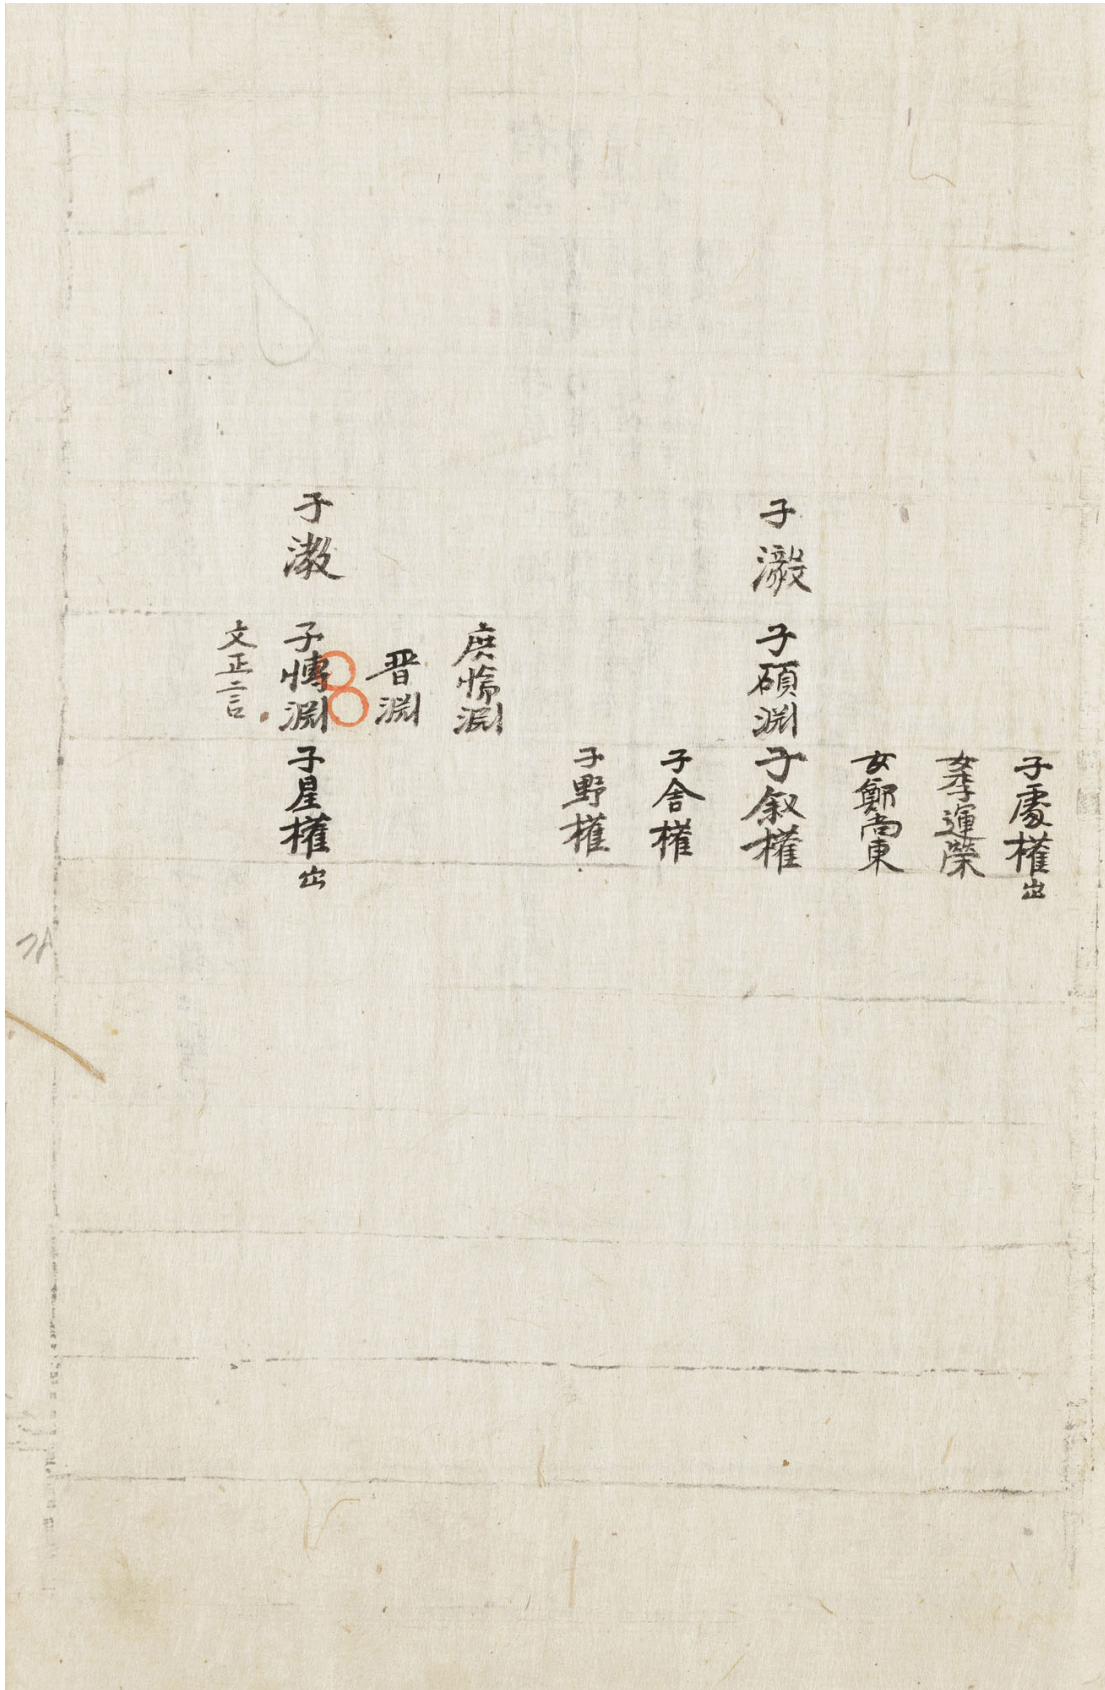 子處權出
女李運榮
女鄭尙東
子瀫
子碩淵
子叙權
子舍權
子野權
庶惰淵
晋淵
子漖
子愽淵
子星權出
文正言